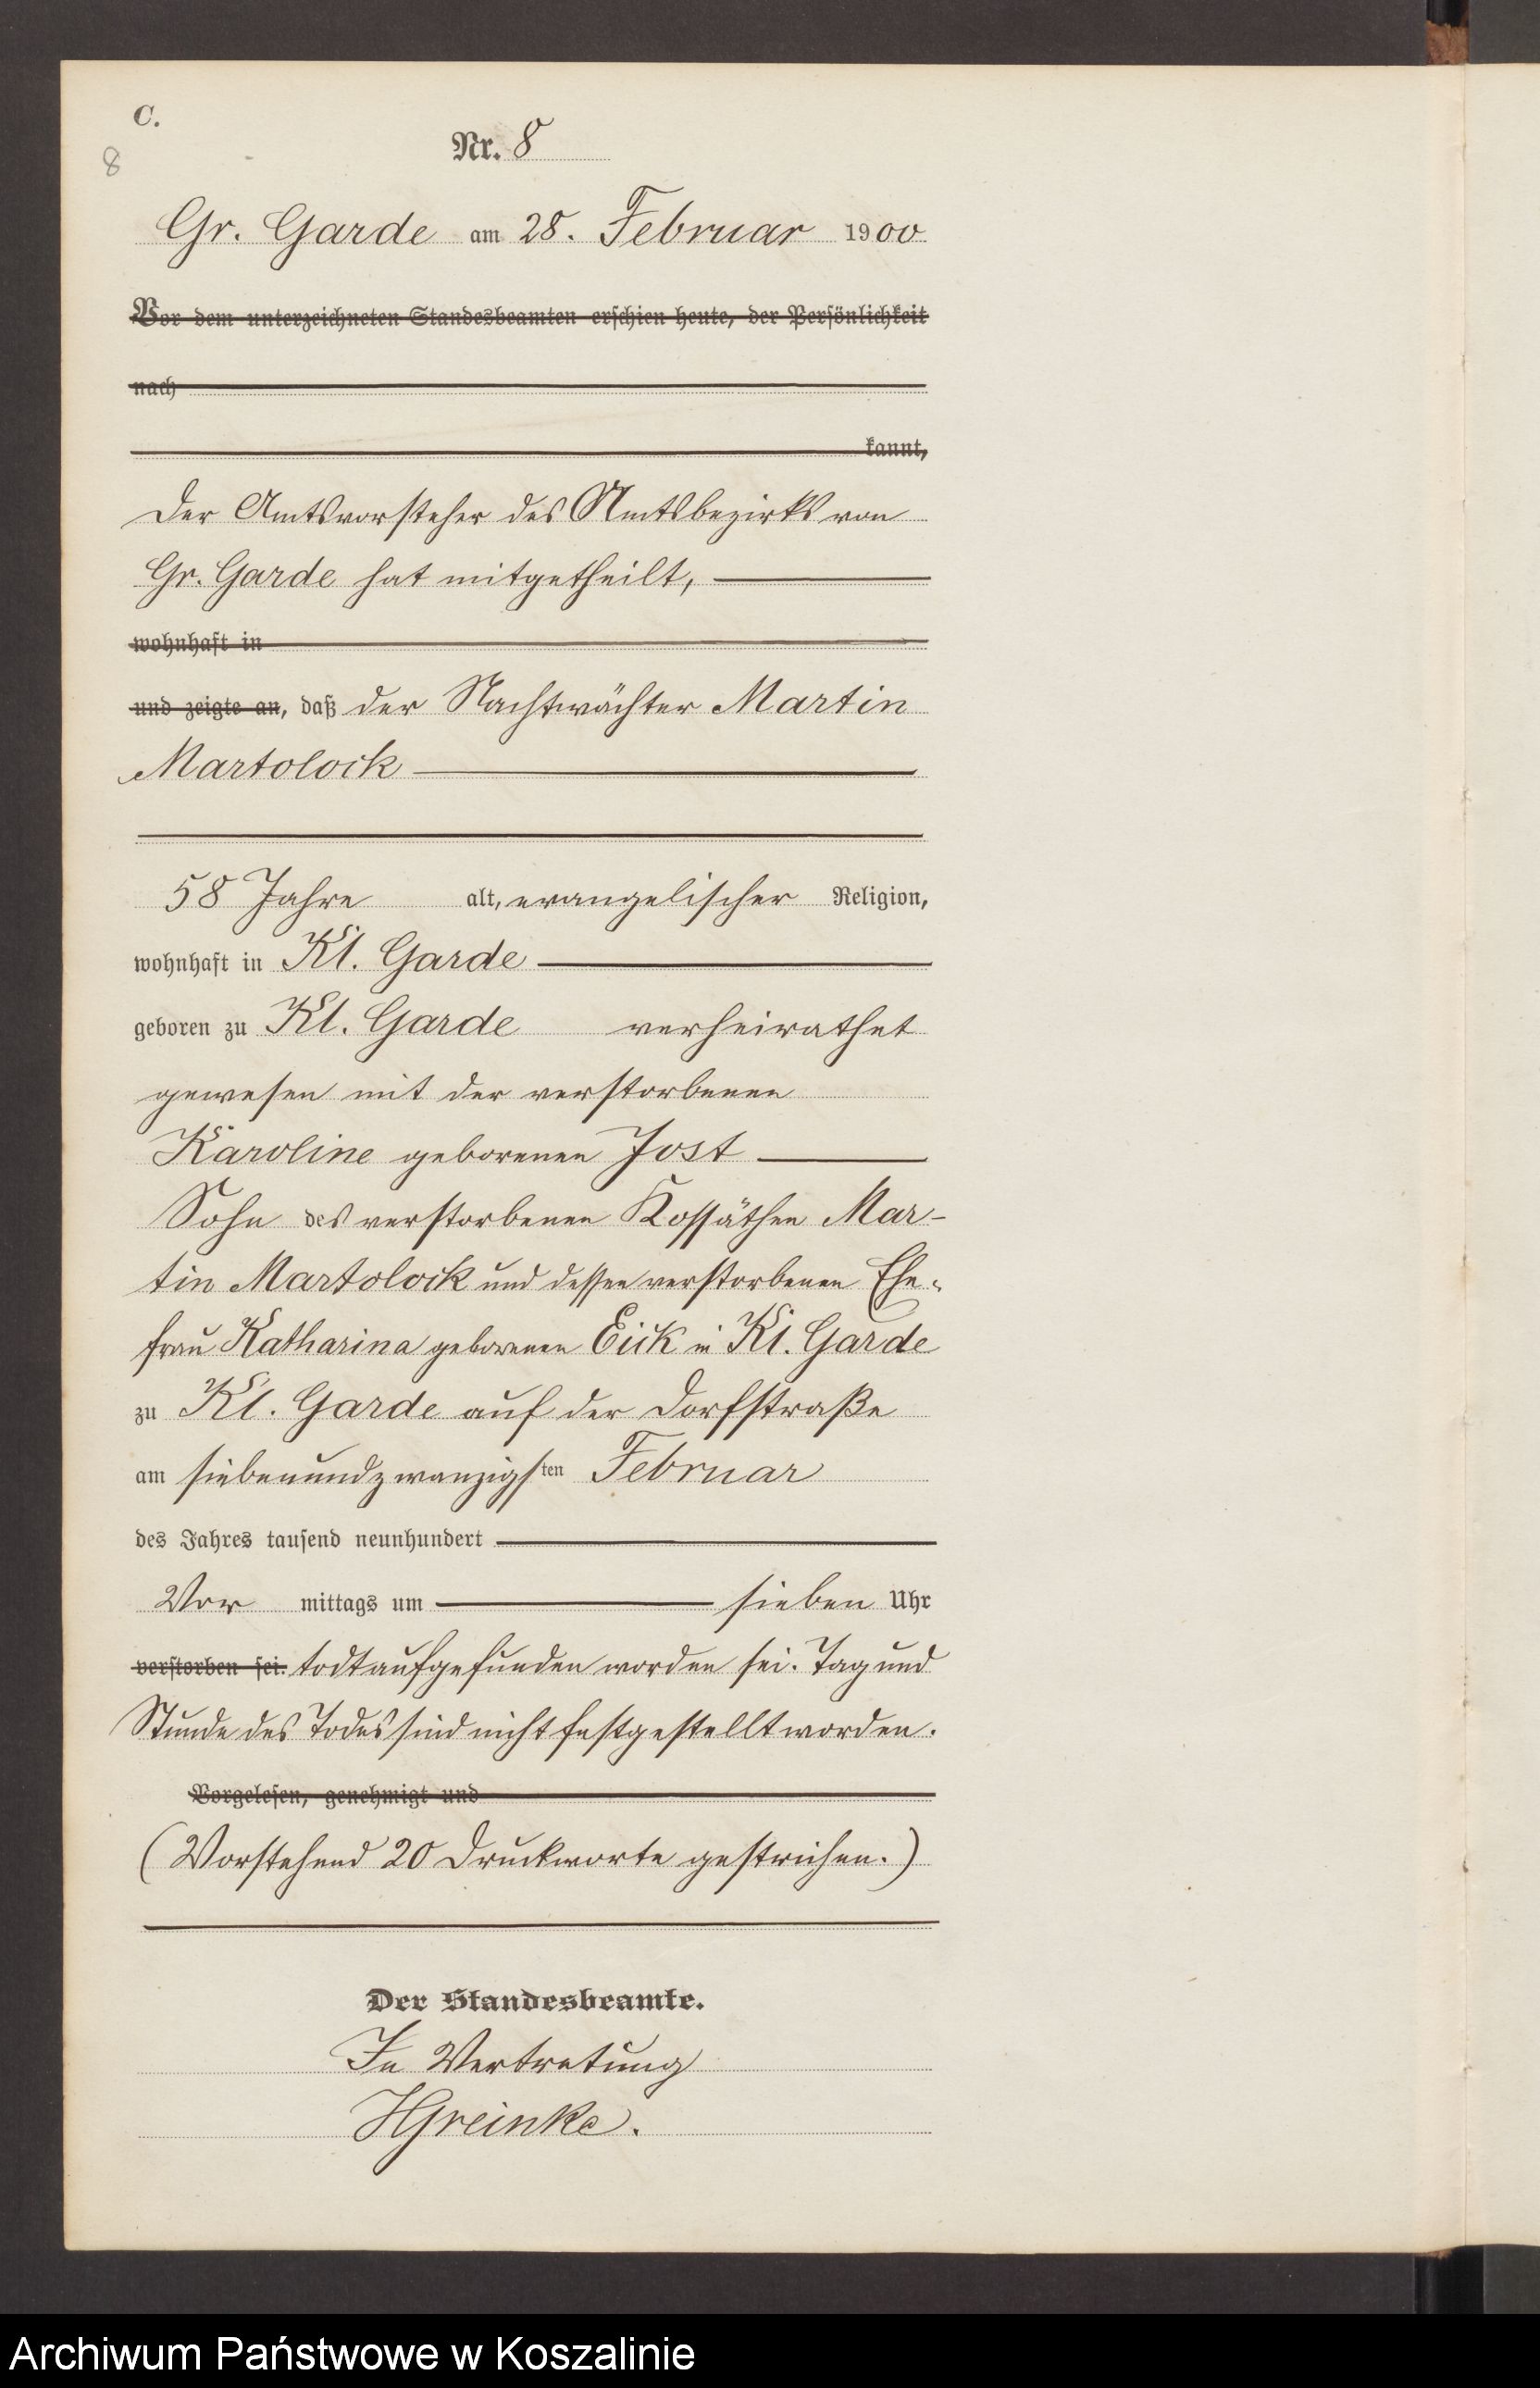 C.
8
Nr. 8
Gr. Garde am 28. Februar 1900
Vor dem unterzeichneten Standesbeamten erschien heute, der Persönlichkeit
nach
kannt,
Der Amtsvorsteher des Amtsbezirks von
Gr. Garde hat mitgetheilt,
wohnhaft in
und zeigte an, daß der Nachtwächter Martin
Martolock
58 Jahre alt, evangelischer Religion,
wohnhaft in Kl. Garde
geboren zu Kl. Garde verheirathet
gewesen mit der verstorbenen
Karoline geborenen Jost
Sohn des verstorbenen Kossäthen Mar-
tin Martolock und dessen verstorbenen Ehe-
frau Katharina geborenen Eick in Kl. Garde
zu Kl. Garde auf der Dorfstraße
am siebenundzwanzigsten Februar
des Jahres tausend neunhundert
Vor mittags um sieben Uhr
verstorben sei. todt aufgefunden worden sei. Tag und
Stunde des Todes sind nicht festgestellt worden.
Vorgelesen, genehmigt und
(Vorstehend 20 Druckworte gestrichen.)
Der Standesbeamte.
In Vertretung
HGreinke.
Archiwum Państwowe w Koszalinie